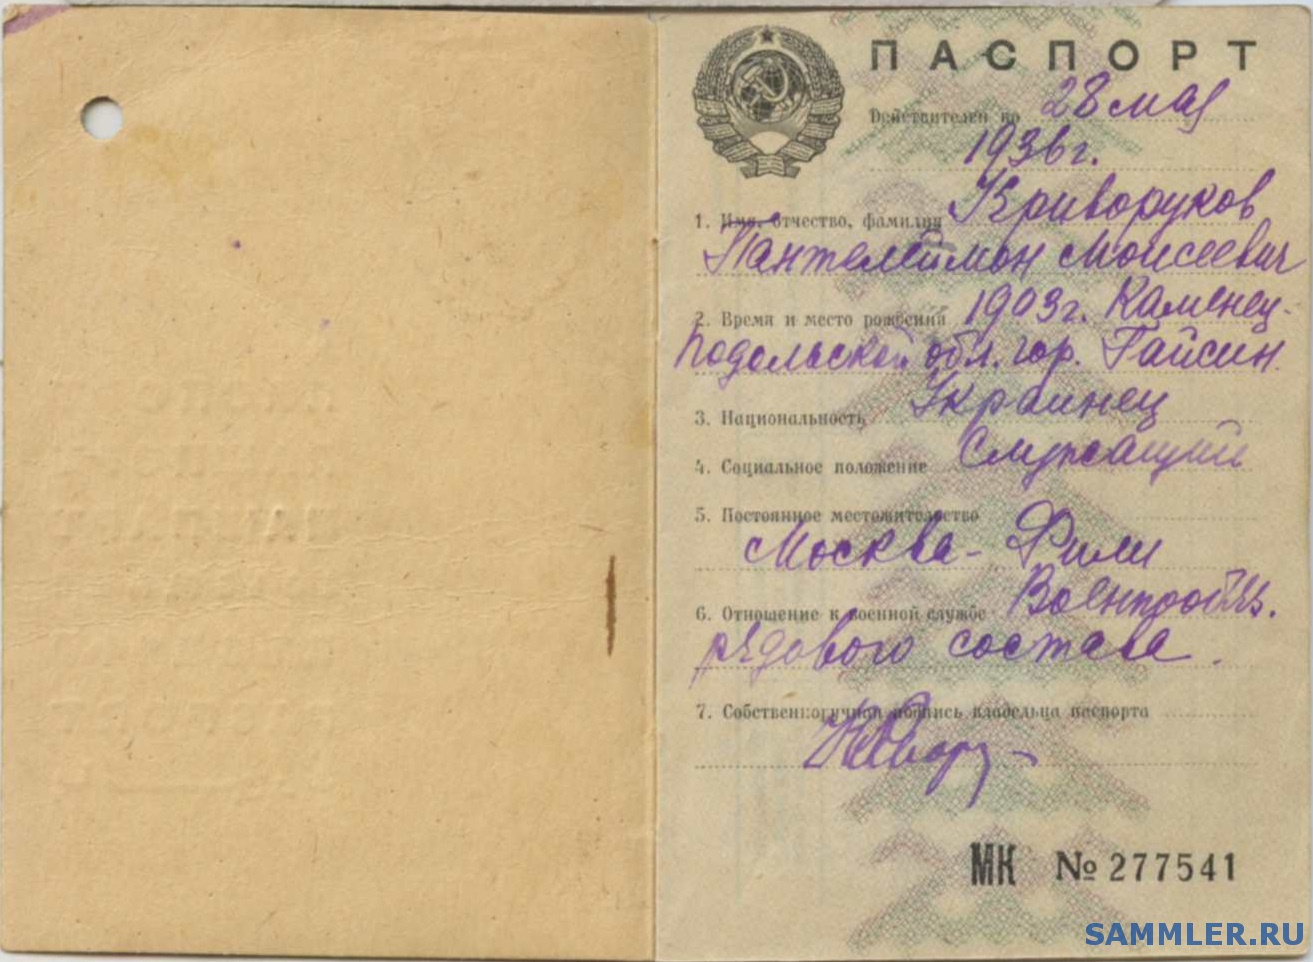 ПАСПОРТ
Действителен по 28 мая
1936 г.
1. Имя, отчество, фамилия Криворуков
Пантелеймон Моисеевич
2. Время и место рождения 1903 г. Каменец-
Подольской обл. гор. Гайсин.
3. Национальность Украинец
4. Социальное положение Служащий
5. Постоянное местожительство
Москва - Фили
6. Отношение к военной службе
рядового состава.
7. Собственноручная подпись владельца паспорта
МК № 277541
SAMMLER.RU